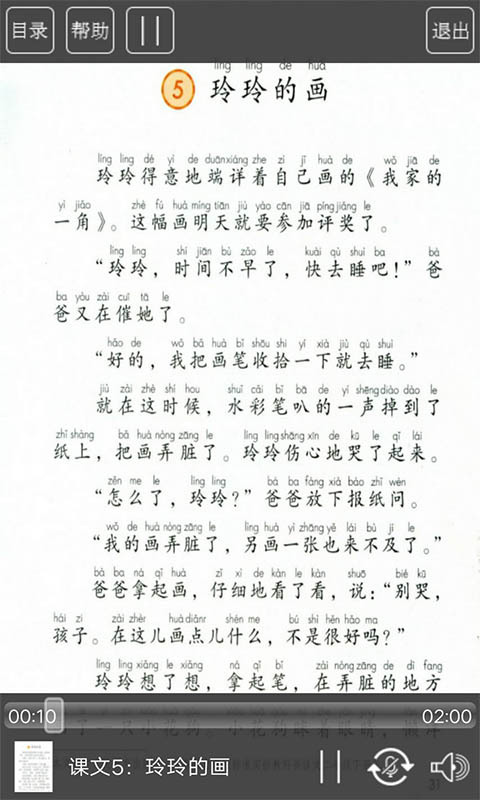 目录 帮助 退出
líng líng de huà
5 玲玲的画
líng líng dé yì de duānxiáng zhe zì jǐ huà de wǒ jiā de
玲玲得意地端详着自己画的《我家的
yì jiǎo zhè fú huà míng tiān jiù yào cān jiā píng jiǎng le
一角》。这幅画明天就要参加评奖了。
líng líng shí jiān bù zǎo le kuài qù shuì ba bà
“玲玲，时间不早了，快去睡吧！”爸
ba yòu zài cuī tā le
爸又在催她了。
hǎo de wǒ bǎ huà bǐ shōu shi yí xià jiù qù shuì
“好的，我把画笔收拾一下就去睡。”
jiù zài zhè shí hou shuǐ cǎi bǐ bā de yì shēng diào dào le
就在这时候，水彩笔叭的一声掉到了
zhǐ shàng bǎ huà nòng zāng le líng líng shāng xīn de kū le qǐ lái
纸上，把画弄脏了。玲玲伤心地哭了起来。
zěn me le líng líng bà ba fàng xià bào zhǐ wèn
“怎么了，玲玲？”爸爸放下报纸问。
wǒ de huà nòng zāng le lìng huà yì zhāng yě lái bù jí le
“我的画弄脏了，另画一张也来不及了。”
bà ba ná qǐ huà zǐ xì de kàn le kàn shuō bié kū
爸爸拿起画，仔细地看了看，说：“别哭，
hái zi zài zhèr huà diǎnr shén me bú shì hěn hǎo ma
孩子。在这儿画点儿什么，不是很好吗？”
líng líng xiǎng le xiǎng ná qǐ bǐ zài nòng zāng de dì fang
玲玲想了想，拿起笔，在弄脏的地方
00:10 02:00
了一只小花狗。小花狗眯着眼睛，懒洋
课文5：玲玲的画
31